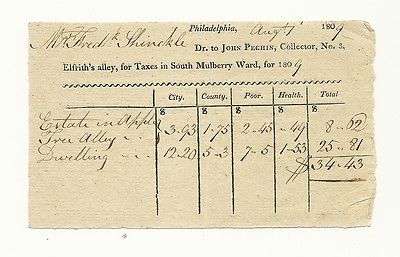 Philadelphia, Augt 1 1809
Mr. Fredk. Shinckle
Dr. to JOHN PECHIN, Collector, No. 3,
Elfrith's alley, for Taxes in South Mulberry Ward, for 1809
City. County. Poor. Health. Total
$ $ $ $ $
Estate in Apple
Tree Alley - - 3-93 1-75 2-45 -49 8-62
Dwelling - - 12-20 5-3 7-5 1-53 25-81
$ 34-43